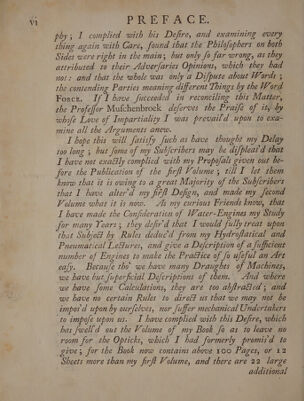 vi PREFACE.
phy; I complied with his Desire, and examining every
thing again with Care, found that the Philosophers on both
Sides were right in the main; but only so far wrong, as they
attributed to their Adversaries Opinions, which they had
not: and that the whole was only a Dispute about Words;
the contending Parties meaning different Things by the Word
FORCE. If I have succeeded in reconciling this Matter,
the Professor Muschenbroek deserves the Praise of it, by
whose Love of Impartiality I was prevail'd upon to exa-
mine all the Arguments anew.
I hope this will satisfy such as have thought my Delay
too long; but some of my Subscribers may be displeas'd that
I have not exactly complied with my Proposals given out be-
fore the Publication of the first Volume; till I let them
know that it is owing to a great Majority of the Subscribers
that I have alter'd my first Design, and made my second
Volume what it is now. As my curious Friends know, that
I have made the Consideration of Water-Engines my Study
for many Years; they desir'd that I would fully treat upon
that Subject by Rules deduc'd from my Hydrostatical and
Pneumatical Lectures, and give a Description of a sufficient
number of Engines to make the Practice of so useful an Art
easy. Because tho' we have many Draughts of Machines,
we have but superficial Descriptions of them. And where
we have some Calculations, they are too abstracted; and
we have no certain Rules to direct us that we may not be
impos'd upon by ourselves, nor suffer mechanical Undertakers
to impose upon us. I have complied with this Desire, which
has swell'd out the Volume of my Book so as to leave no
room for the Opticks, which I had formerly promis'd to
give; for the Book now contains above 100 Pages, or 12
Sheets more than my first Volume, and there are 22 large
additional